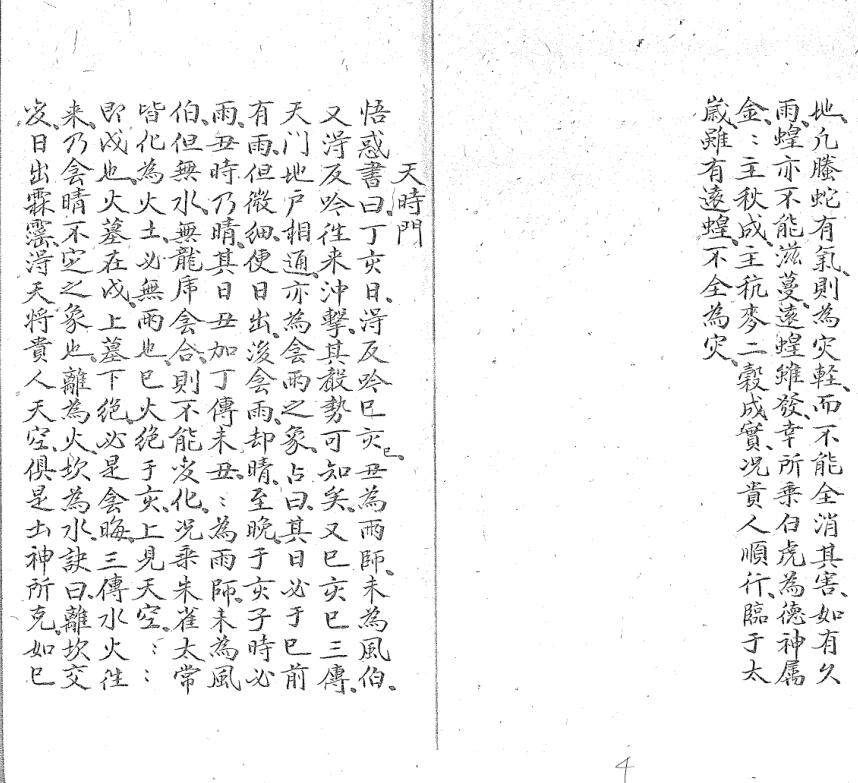 地、凢螣蛇有氣、則為灾軽、而不能全消其害、如有久
雨、蝗亦不能滋蔓、遠蝗雖發、幸所乗白虎為德神属
金、：主秋成、主秔麥二穀成實、况貴人順行、臨于太
歲、雖有遠蝗、不全為灾、
天時門
悟惑書曰、丁亥日、淂反吟巳亥巳、丑為雨師、未為風伯、
又淂反吟徃来沖擊、其殺勢可知矣、又巳亥巳三傳、
天门地戸相通、亦為会雨之象、占曰、其日必于巳前
有雨、但微細、便日出、後会雨、却晴、至晚、于亥子時必
雨、丑時乃晴、其日丑加丁傳未丑、：為雨師、未為風
伯、但無水、無龍虎会合、則不能変化、况乗朱雀太常
皆化為火土、必無雨也、巳火絶于亥、上見天空、：：
即戌也、火墓在戌、上墓下絶、必是会晦、三傳水火徃
来、乃会晴不定之象也、離為火、坎為水、訣曰、離坎交
変日出霖霪、淂天将貴人天空、俱是土神所克、如巳
4